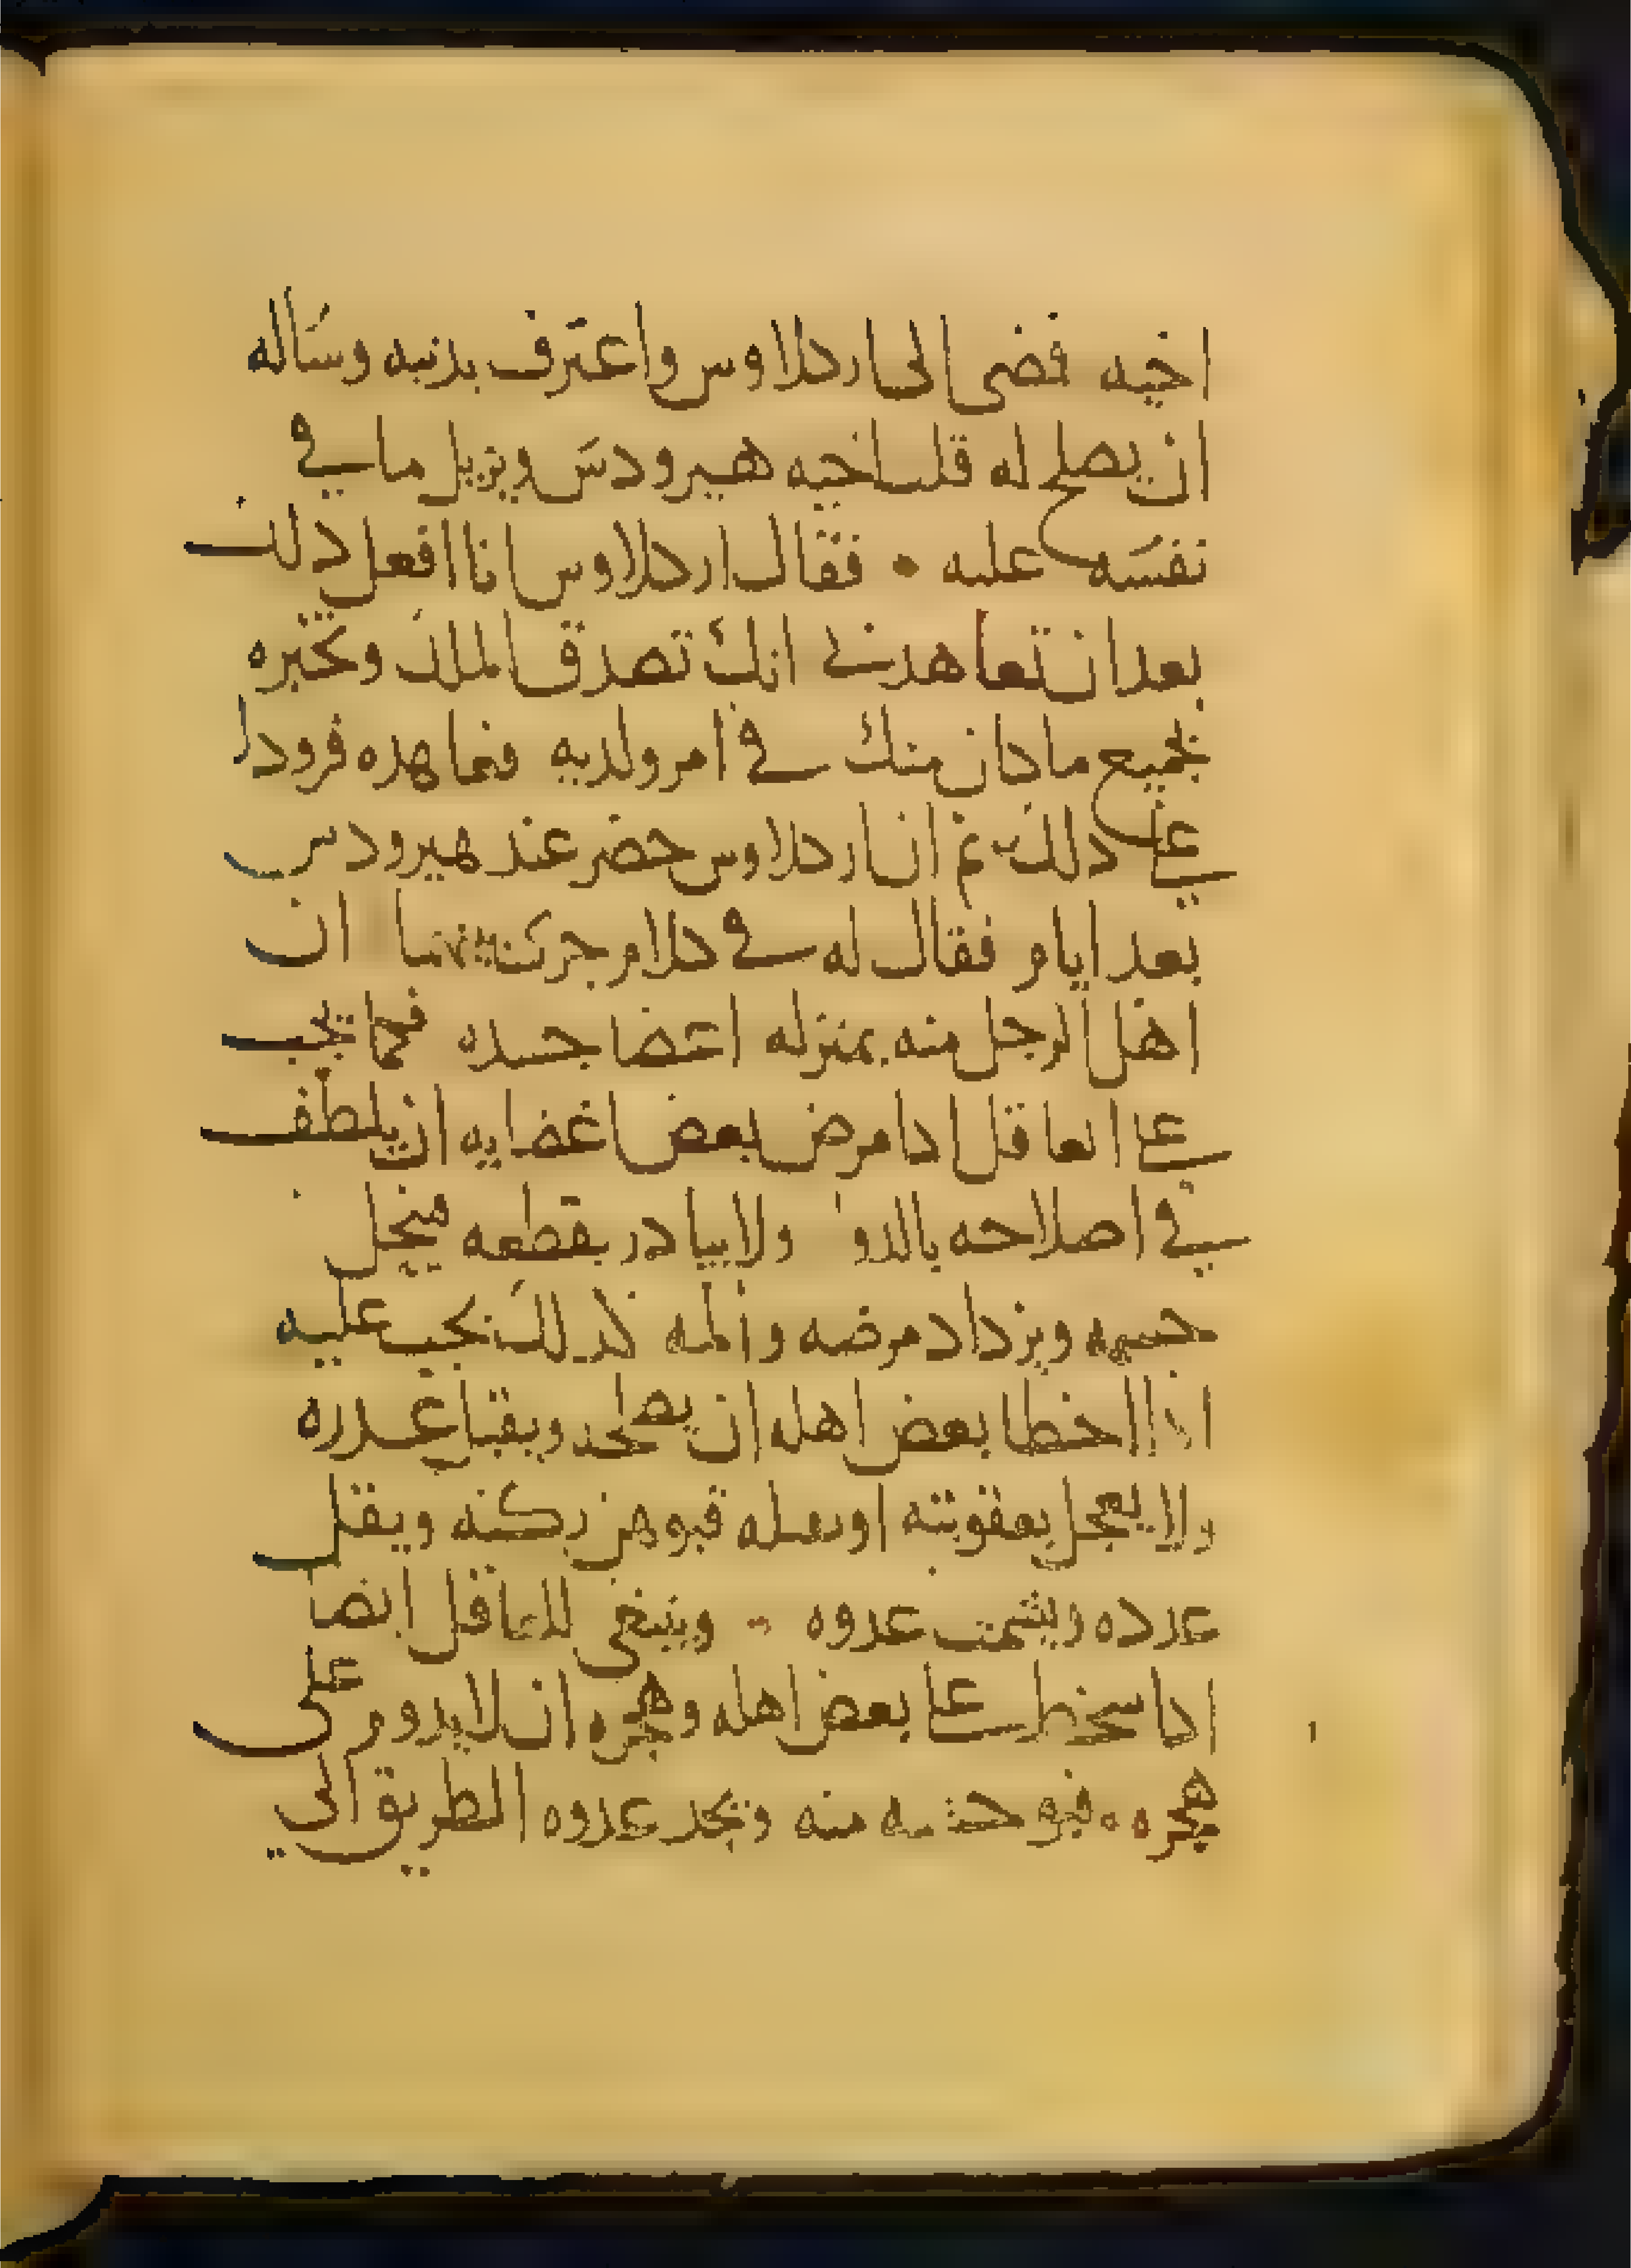 اخيه فمضى الى اردلاوس واعترف بدنبه وسَاله
ان يصلح له قلب اخيه هيرودسَ ويزيل ما في
نفسَه عليه • فقال اردلاوس انا افعل دلك
بعد ان تعاهدني انك تصدق الملك وتخبره
بجميع ما كان منك في امر ولديه فعاهده فرودا
علي دلك ثم ان اردلاوس حضر عند هيرودس
بعد ايام فقال له في كلام جرى بينهما ان
اهل الرجل منه بمنزله اعضا جسده فكما يجب
علي العاقل ادا مرض بعض اعضايه ان يلطف
في اصلاحه بالدوا ولا يبادر بقطعه فينحل
جسمه ويزداد مرضه والمه كدلك يجب عليه
اذا اخطا بعض اهله ان يصلحه ويقبل عدره
ولا يعجل بعقوبته او بقتله فيوهن ركنه ويقل
عدده ويشمت عدوه وينبغي للعاقل ايضا
ادا سخط علي بعض اهله وهجره ان لا يدوم على
هجره منه ويجد عدوه الطريق الي